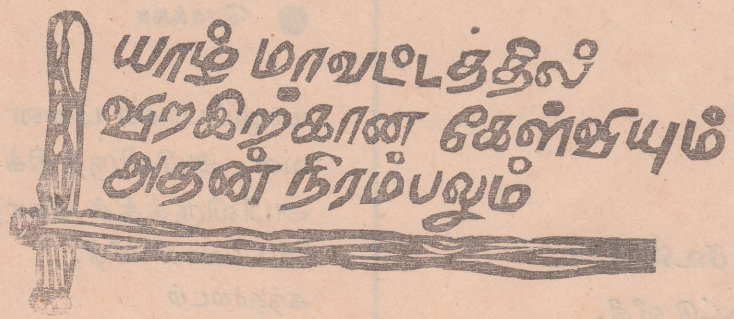 யாழ் மாவட்டத்தில்
விறகிற்கான கேள்வியும்
அதன் நிரம்பலும்